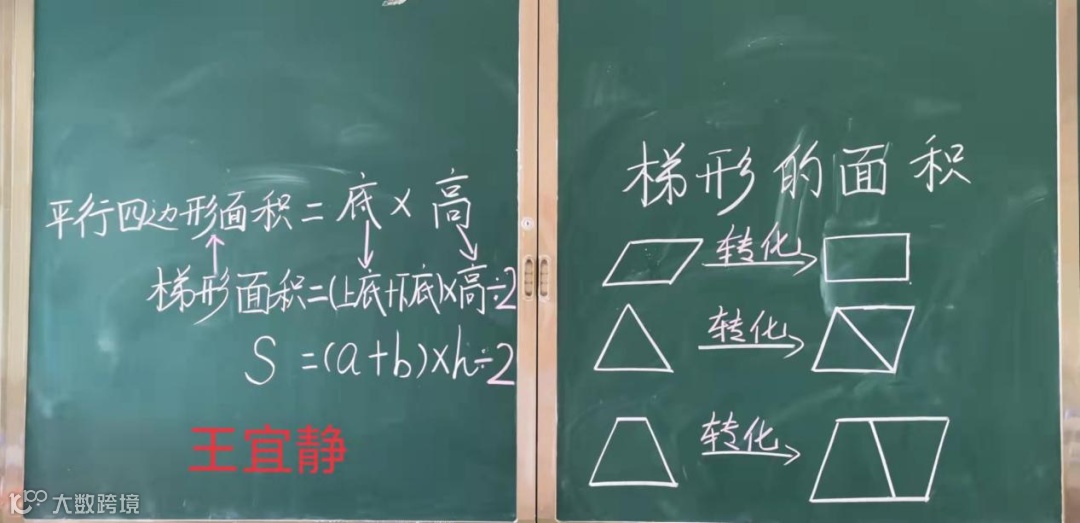 平行四边形面积=底×高
梯形面积=(上底+下底)×高÷2
S=(a+b)×h÷2
王宜静
大数跨境
梯形的面积
转化
转化
转化